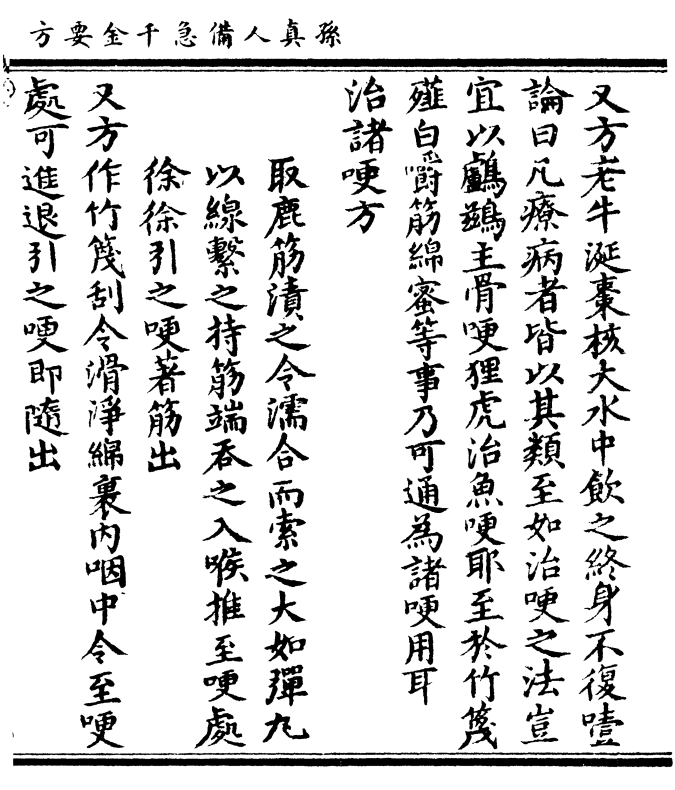 孫真人備急千金要方
又方老牛涎棗核大水中飲之終身不復噎
論曰凡療病者皆以其類至如治哽之法豈
宜以鸕鷀主骨哽狸虎治魚哽耶至於竹篾
薤白嚼筋綿蜜等事乃可通為諸哽用耳
治諸哽方
取鹿筋漬之令濡合而索之大如彈丸
以線繫之持筋端吞之入喉推至哽處
徐徐引之哽著筋出
又方作竹篾刮令滑淨綿裹內咽中令至哽
處可進退引之哽即隨出